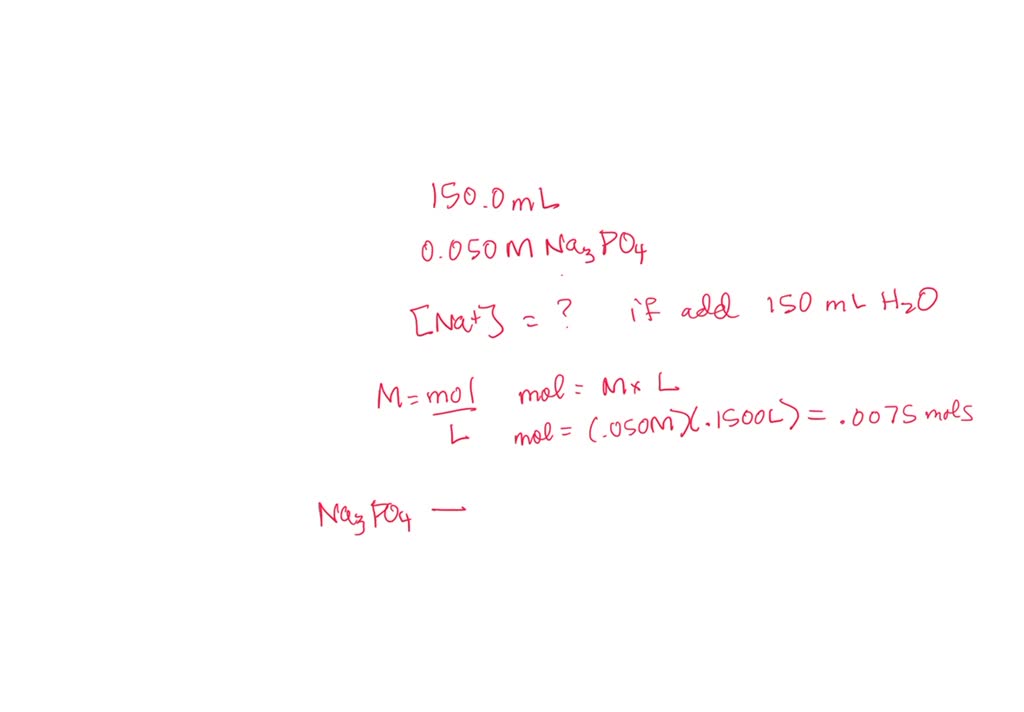 150.0 mL
0.050 M Na₃PO₄
[Na⁺] = ? if add 150 mL H₂O
M = mol/L mol = M × L
mol = (.050M)(.1500L) = .0075 mols
Na₃PO₄ —